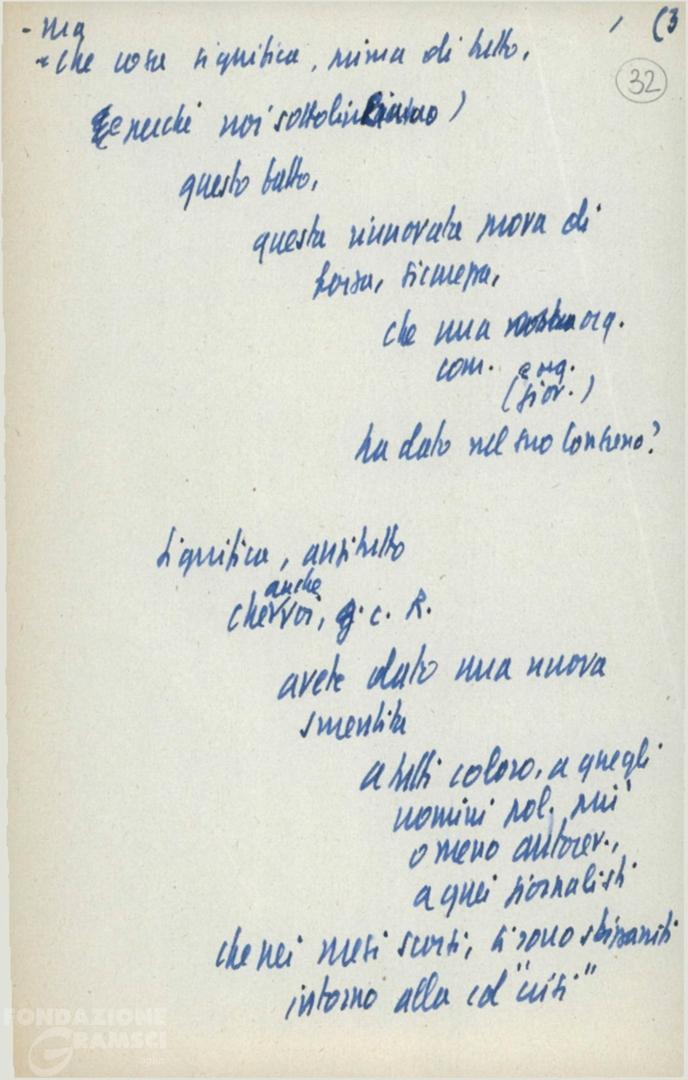 - ma (3
- che cosa significa, prima di tutto,
32
(e perché noi sottolineiamo)
questo fatto,
questa rinnovata prova di
forza, sicurezza,
che una nostra org.
com. e org.
(giov.)
ha dato nel suo Congresso?
Significa, anzitutto
anche
che voi, g. c. R.
avete dato una nuova
smentita
a tutti coloro, a quegli
uomini pol. più
o meno autorev.,
a quei giornalisti
che nei mesi scorsi, si sono sbizzarriti
intorno alla cd "crisi"
FONDAZIONE
GRAMSCI